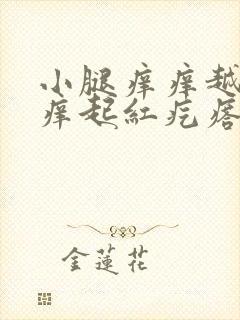 小腿痒痒越
痒起紅疙瘩
金蓮花